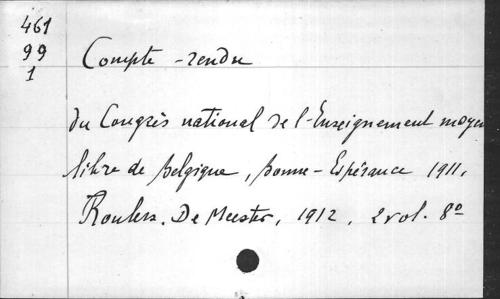 461
99
1
Compte-rendu
du Congrès national de l'Enseignement moyen
libre de Belgique, Bonne-Espérance 1911.
Roulers. De Meester, 1912. 2 vol. 8º